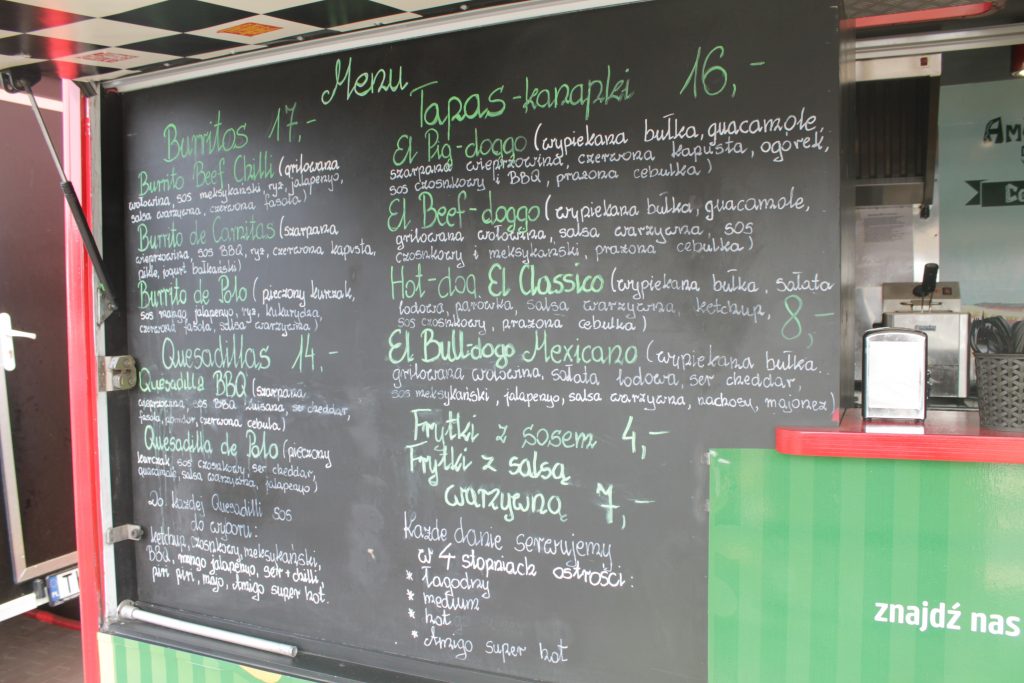 Menu
Burritos 17,-
Burrito Beef Chilli (grilowana
wołowina, sos meksykański, ryż, jalapenyo,
salsa warzywna, czerwona fasola)
Burrito de Carnitas (szarpana
wieprzowina, sos BBQ, ryż, czerwona kapusta,
pikle, jogurt bałkański)
Burrito de Polo (pieczony kurczak,
sos mango jalapenyo, ryż, kukurydza,
czerwona fasola, salsa warzywna)
Quesadillas 14,-
Quesadilla BBQ (szarpana
wieprzowina, sos BBQ, ser cheddar,
fasola, pomidor, czerwona cebula)
Quesadilla de Polo (pieczony
kurczak, sos czosnkowy, ser cheddar,
guacamole, salsa warzywna, jalapenyo)
Do każdej Quesadilli sos
do wyboru:
ketchup, czosnkowy, meksykański,
BBQ, mango jalapenyo, ser + chilli,
piri piri, majo, Amigo super hot.
Tapas-kanapki 16,-
El Pig-doggo (wypiekana bułka, guacamole,
szarpana wieprzowina, czerwona kapusta, ogórek,
sos czosnkowy i BBQ, prażona cebulka)
El Beef-doggo (wypiekana bułka, guacamole,
grilowana wołowina, salsa warzywna, sos
czosnkowy i meksykański, prażona cebulka)
Hot-dog El Classico (wypiekana bułka, sałata
lodowa, parówka, salsa warzywna, ketchup,
sos czosnkowy, prażona cebulka) 8,-
El Bull-dogo Mexicano (wypiekana bułka.
grilowana wołowina, sałata lodowa, ser cheddar,
sos meksykański, jalapenyo, salsa warzywna, nachosy, majonez)
Frytki z sosem 4,-
Frytki z salsą
warzywną 7,-
Każde danie serwujemy
w 4 stopniach ostrości:
* łagodny
* medium
* hot
* Amigo super hot
Am
Co
znajdź nas